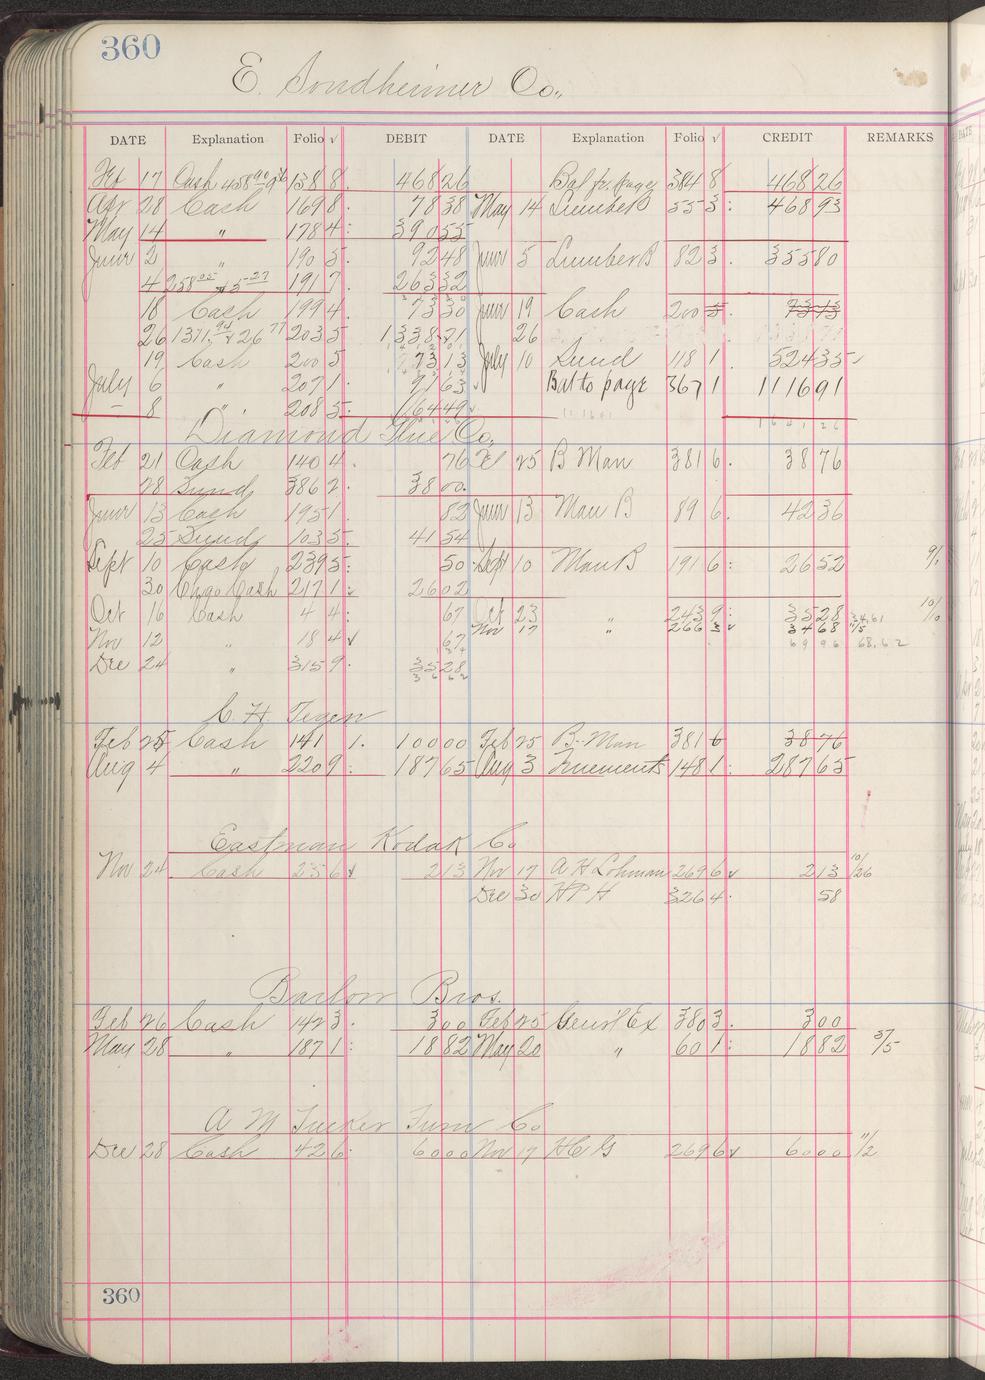 360
E. Sondheimer Co.,
DATE Explanation Folio √ DEBIT DATE Explanation Folio √ CREDIT REMARKS
Feb 17 Cash 138 8 468 26 Bal fr. page 384 8 468 26
Apr 28 Cash 169 8 78 38 May 14 Lumber B 55 3 468 93
May 14 " 178 4 390 55
June 2 " 190 5 92 48 June 5 Lumber B 82 3 355 80
4 191 7 263 32
18 Cash 199 4 73 30 June 19 Cash 200 5 73 13
26 203 5 1338 21 26
19 Cash 200 5 73 13 July 10 Sund 118 1 524 35
July 6 " 207 1 91 63 Bal to page 367 1 1116 91
8 " 208 5 64 49
Diamond Glue Co.
Feb 21 Cash 140 4 76 Feb 25 B Man 381 6 38 76
28 Sund 386 2 38 00
June 13 Cash 195 1 82 June 13 Man B 89 6 42 36
25 Sund 103 5 41 54
Sept 10 Cash 239 5 50 Sept 10 Man B 191 6 26 52
30 Chgo Cash 217 1 26 02
Oct 16 Cash 4 4 67 Oct 23 243 9 35 28
Nov 12 18 4 67 Nov 17 " 266 3 34 68 11/5
Dec 24 " 315 9 35 28
C. H. Tegen
Feb 25 Cash 141 1 100 00 Feb 25 B. Man 381 6 38 76
Aug 4 " 220 9 187 65 Aug 3 148 1 287 65
Eastman Kodak Co
Nov 24 Cash 236 2 13 Nov 17 A H Lohman 269 6 2 13 10/26
Dec 30 H P H 326 4 58
Barlow Bros.
Feb 26 Cash 142 3 3 00 Feb 25 Genr'l Ex 380 3 3 00
May 28 " 187 1 18 82 May 20 " 60 1 18 82
A M Tucker Furn Co
Dec 28 Cash 42 6 60 00 Nov 17 H C G 269 6 60 00 11/2
360